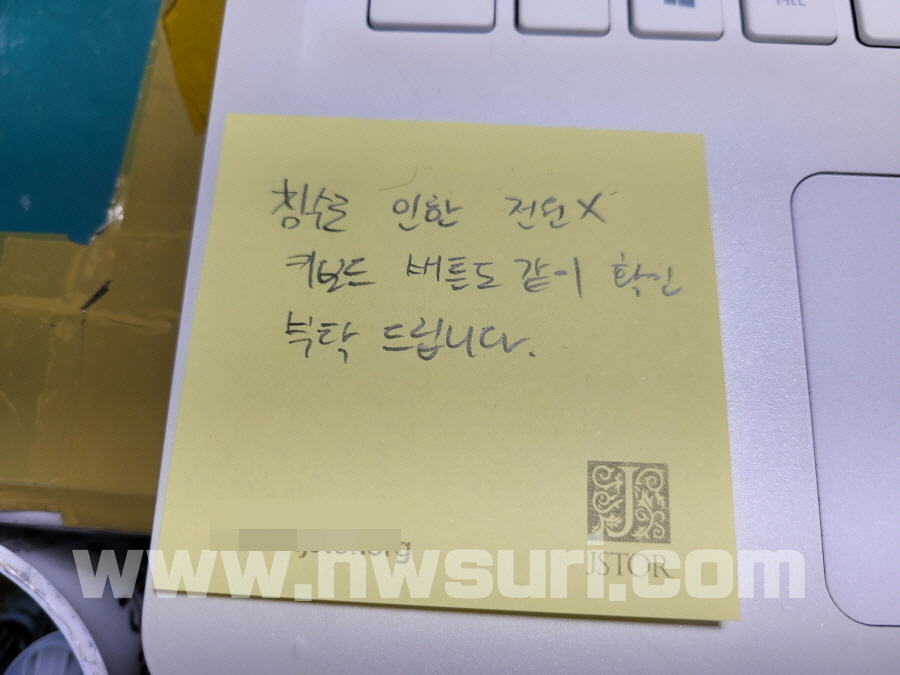 Alt
침수로 인한 전원X
키보드 버튼도 같이 확인
부탁 드립니다.
J
JSTOR
www.nwsuri.com